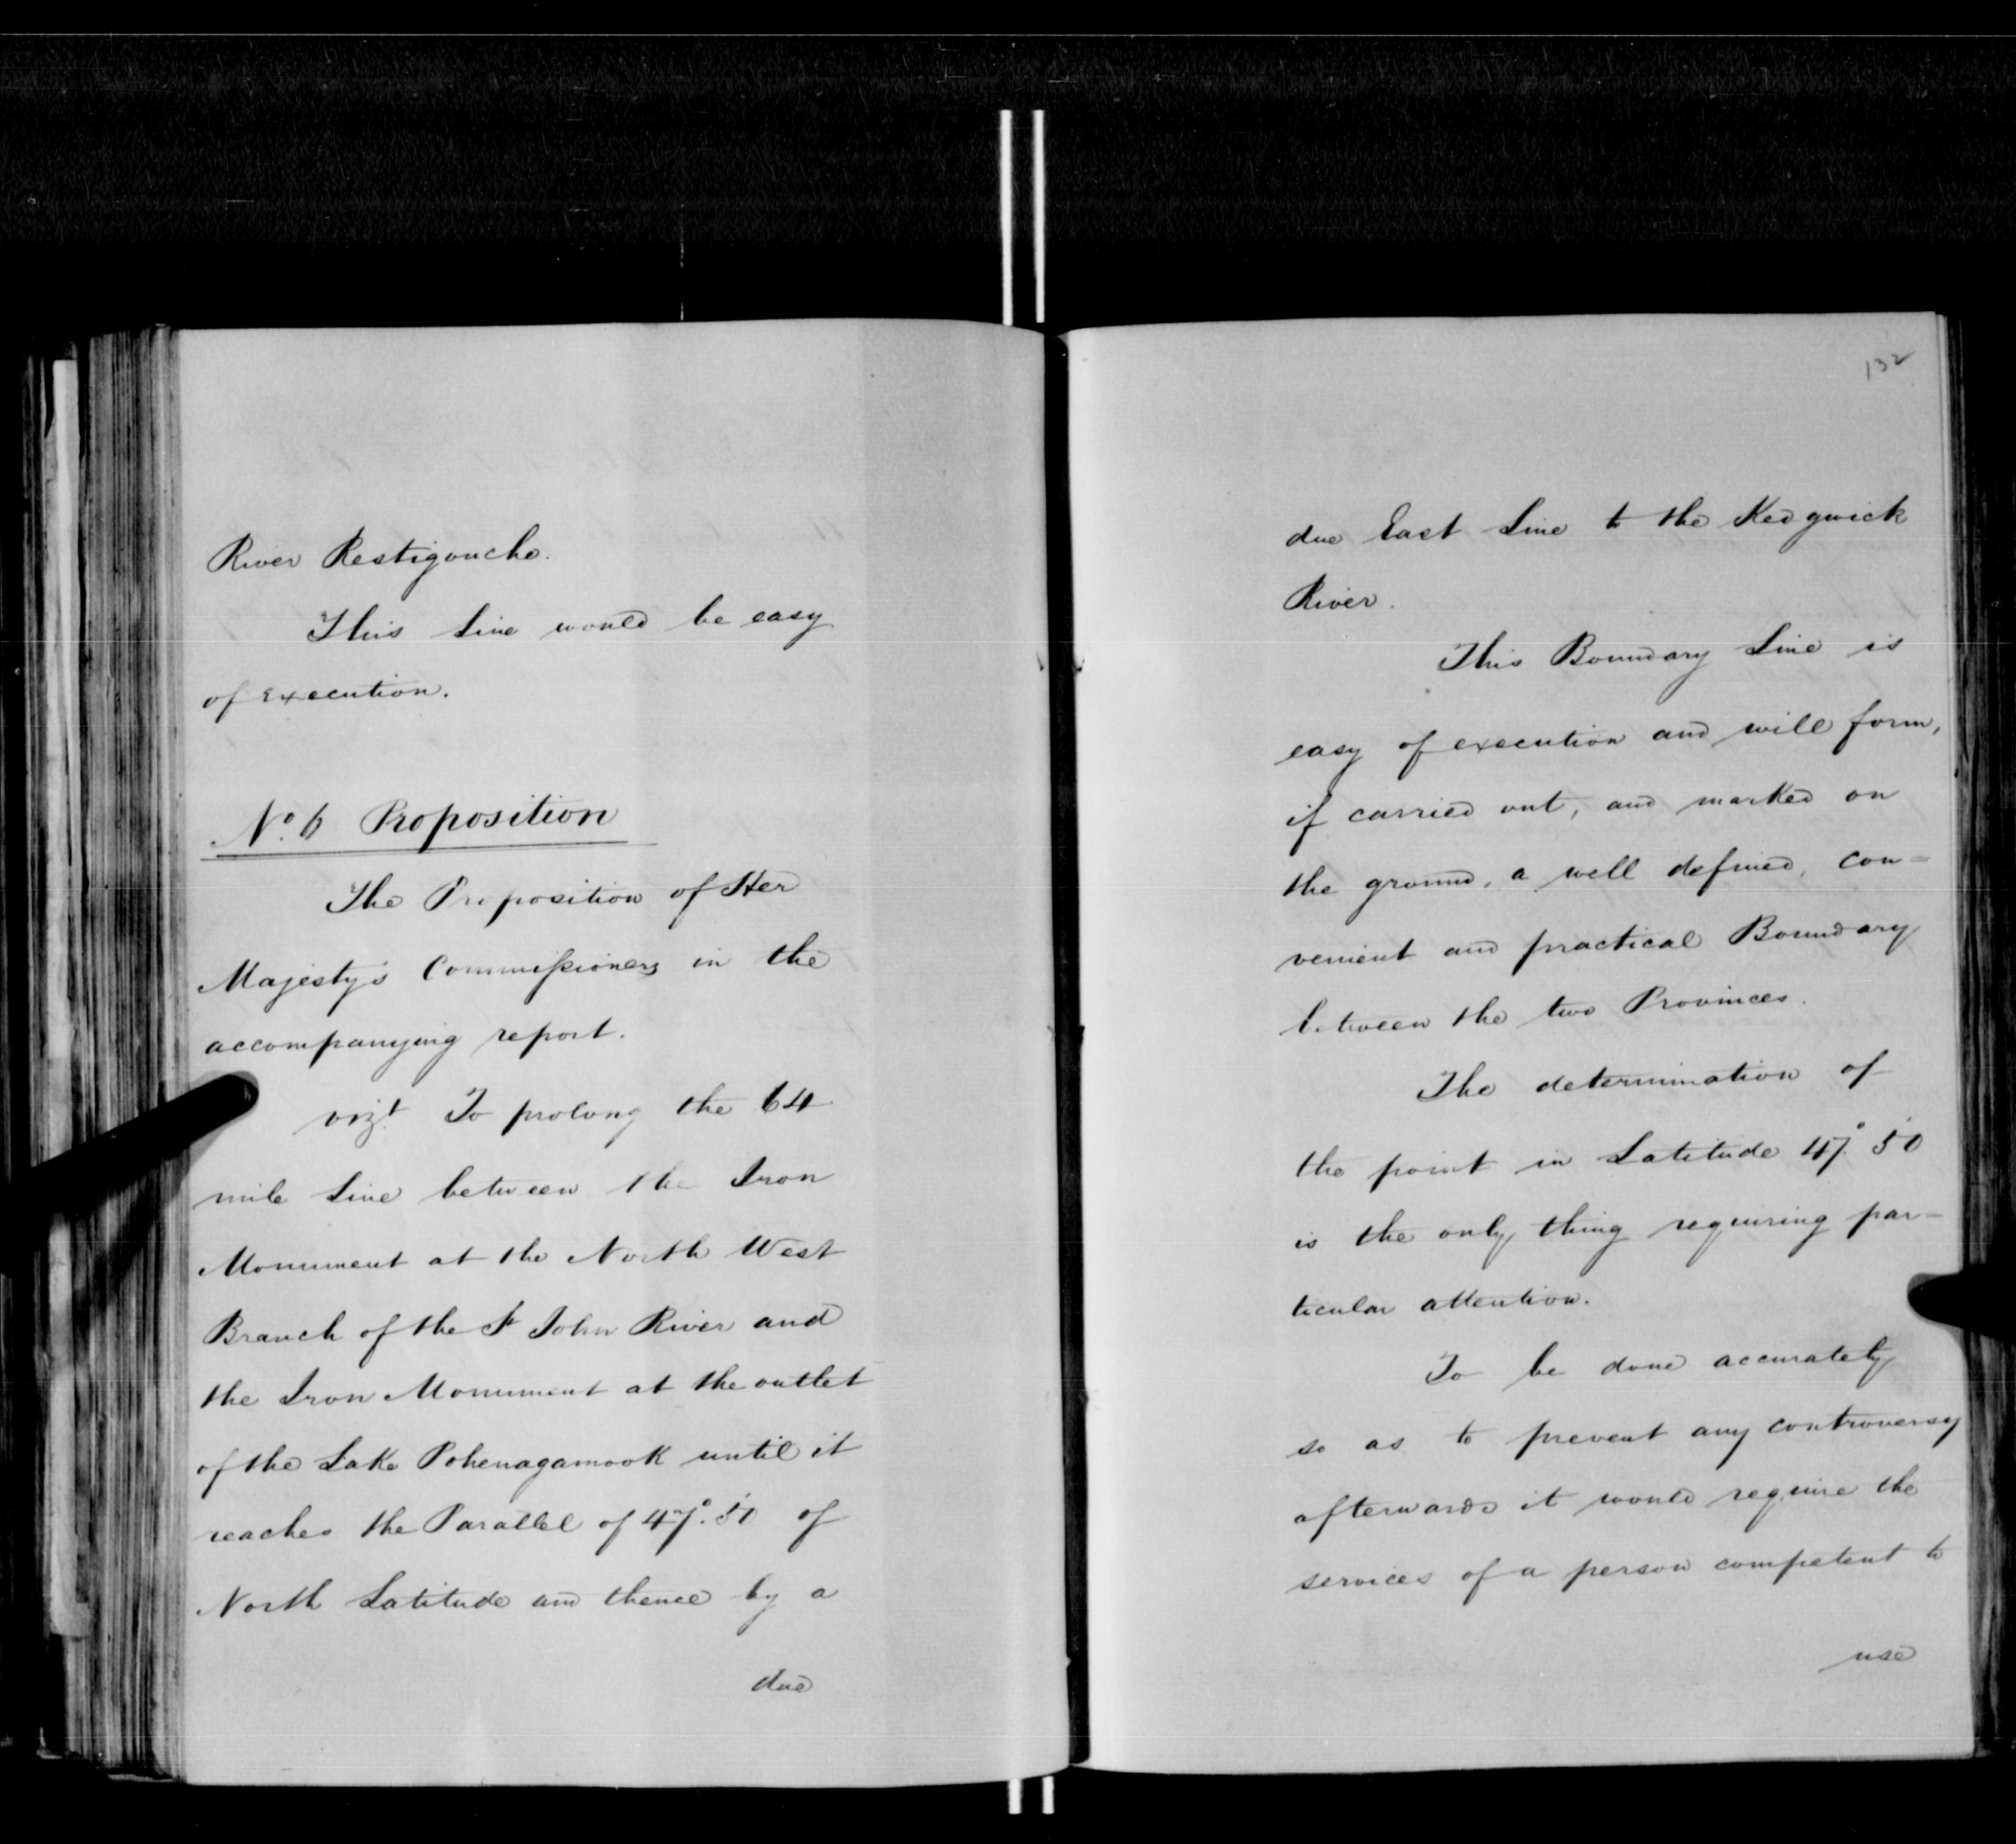 River Restigouche.
This Line would be easy
of Execution.
No. 6 Proposition
The Proposition of Her
Majesty's Commissioners in the
accompanying report.
vizt. To prolong the 64
mile Line between the Iron
Monument at the North West
Branch of the St John River and
the Iron Monument at the outlet
of the Lake Pohenagamook until it
reaches the Parallel of 47°. 50' of
North Latitude and thence by a
due
132
due East Line to the Kedgwick
River.
This Boundary Line is
easy of execution and will form,
if carried out, and marked on
the ground, a well defined, con=
venient and practical Boundary
between the two Provinces.
The determination of
the point in Latitude 47°. 50'
is the only thing requiring par=
ticular attention.
To be done accurately
so as to prevent any controversy
afterwards it would require the
services of a person competent to
use